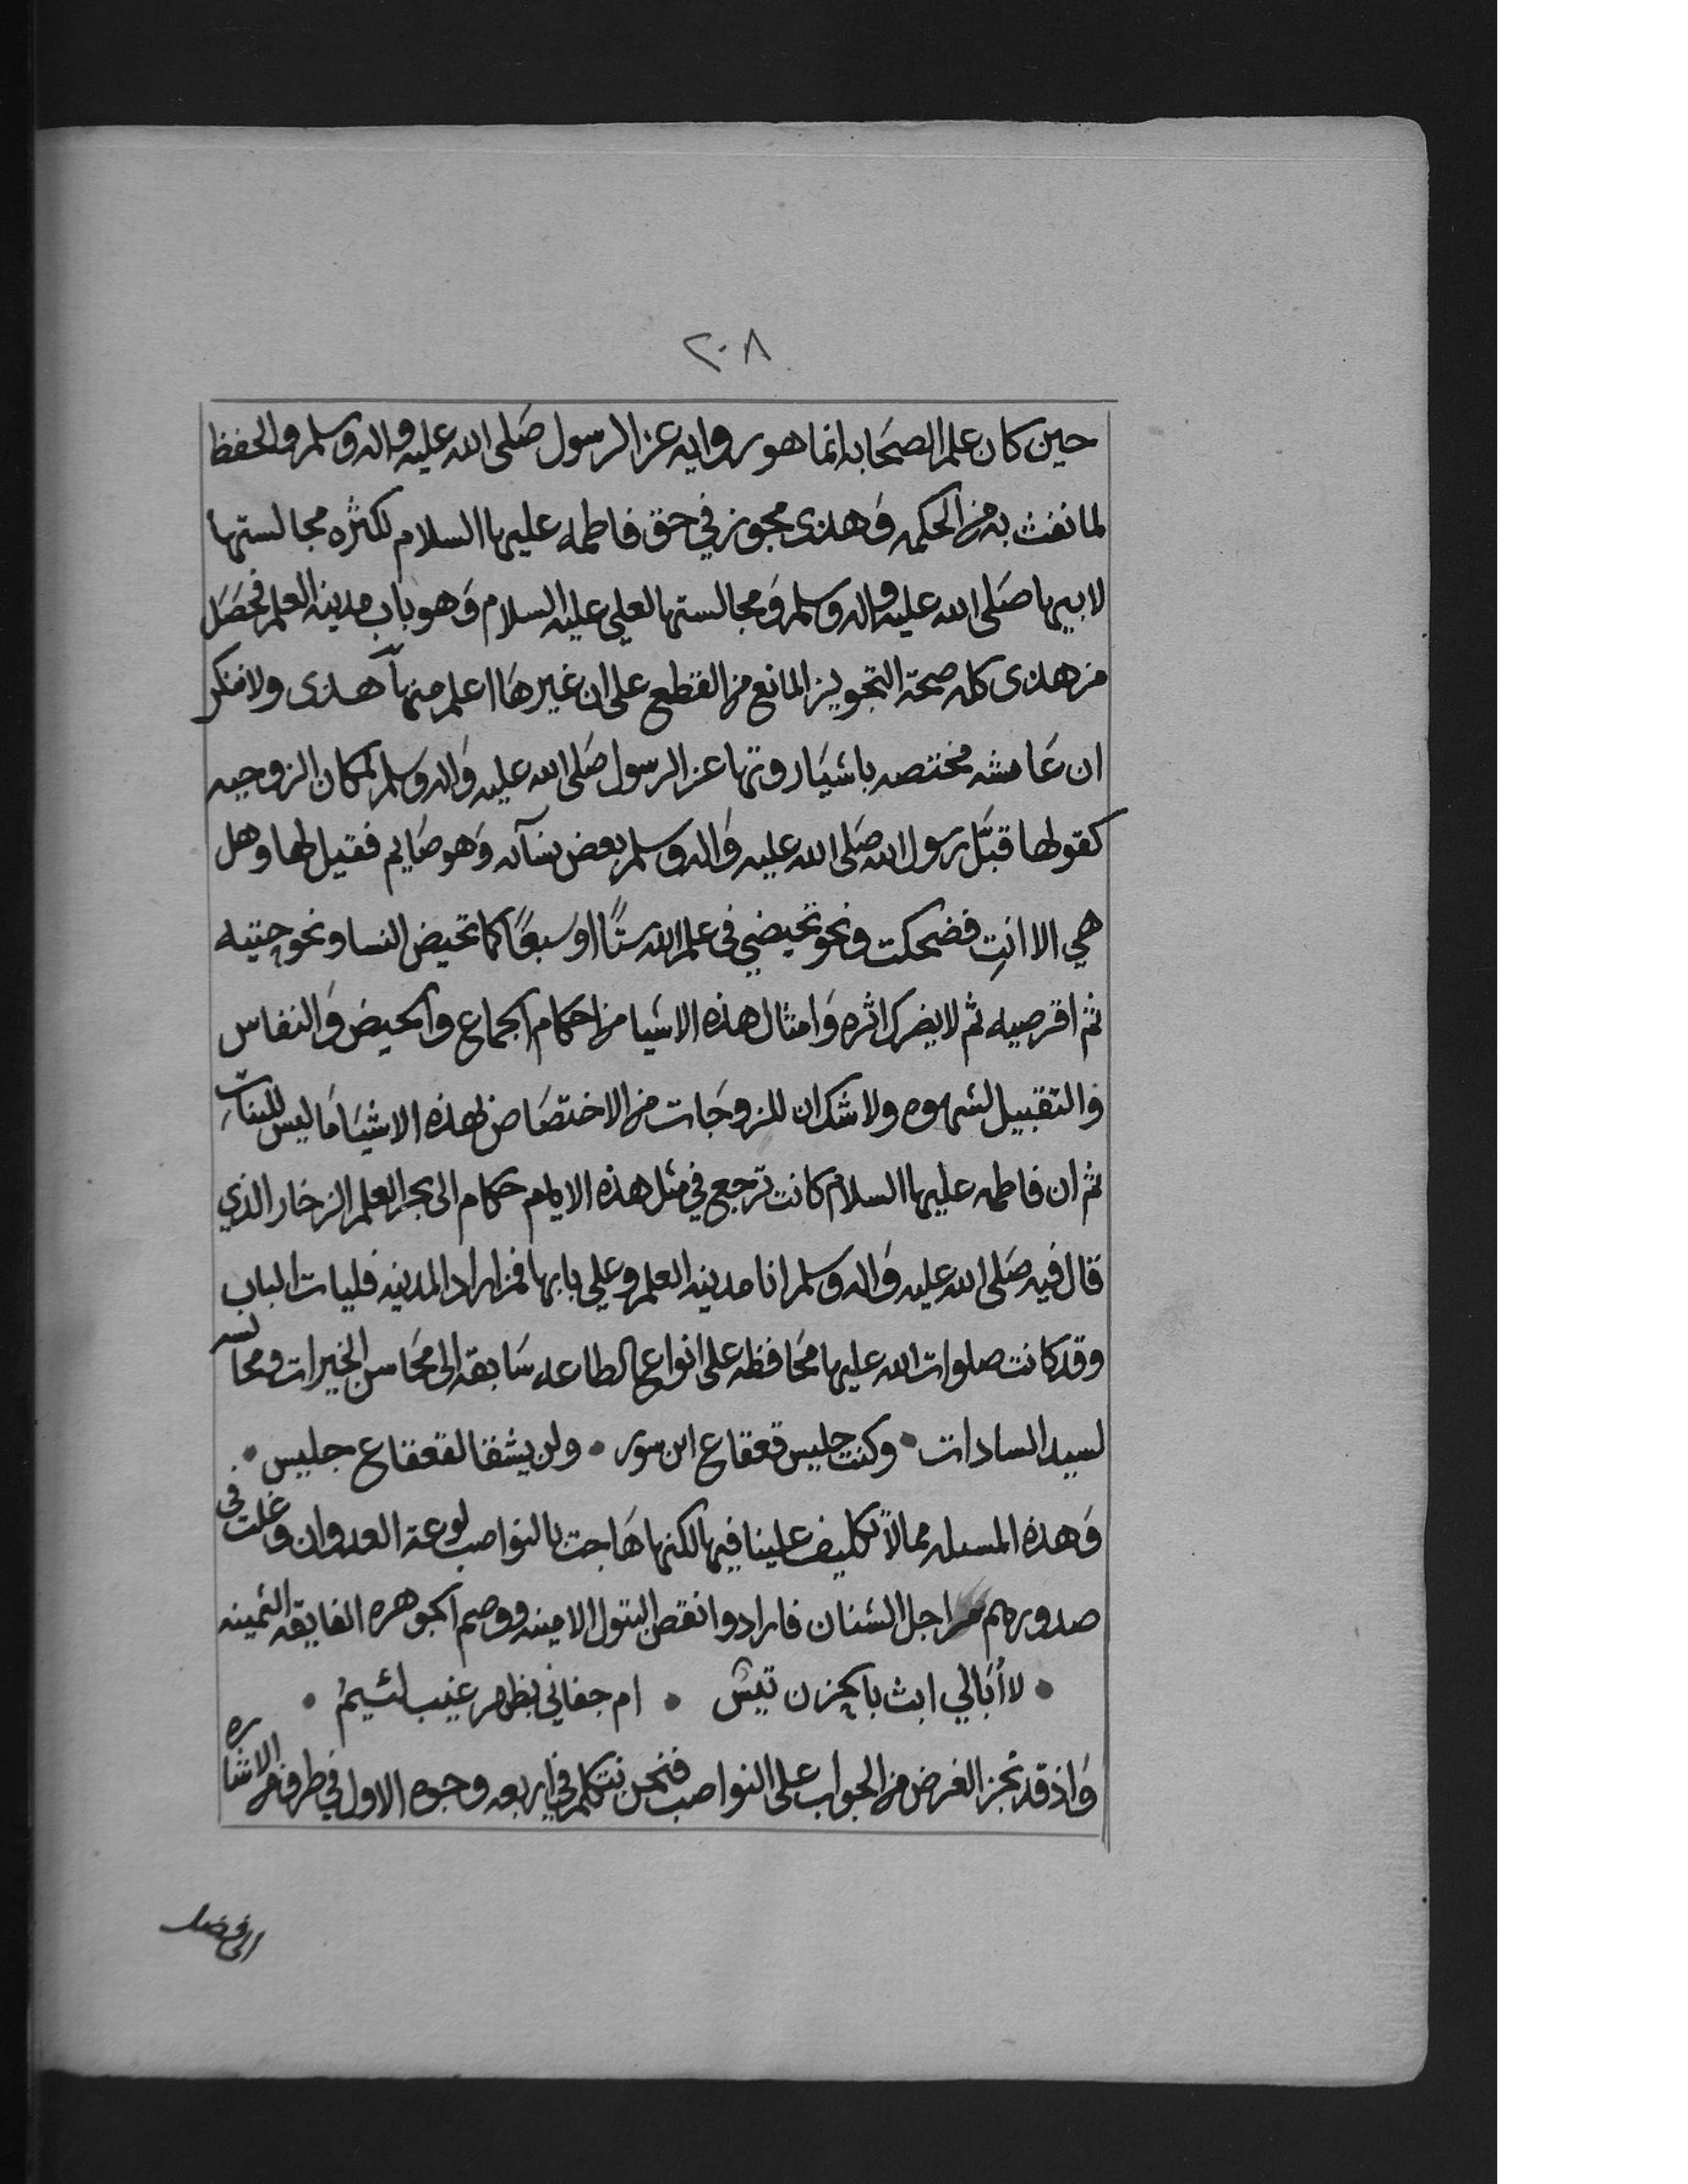 ٢٠٨
حين كان علم الصحابه انما هو روايه عن الرسول صلى الله عليه واله وسلم والحفظ
لما نفث به من الحكمه وهذى مجوز في حق فاطمه عليها السلام لكثره مجالستها
لابيها صلى الله عليه واله وسلم ومجالستها لعلي عليه السلام وهو باب مدينه العلم فحصل
من هذى كله صحة التجويز المانع من القطع على ان غيرها اعلم منها هذى ولا منكر
ان عامشه مختصه باشيا روتها عن الرسول صلى الله عليه واله وسلم لمكان الزوجيه
كقولها قبّل رسول الله صلى الله عليه واله وسلم بعض نسآئه وهو صايم فقيل لها وهل
هي الا انتِ فضحكت ونحو تحيضي فى علم الله ستًا او سبعًا كما تحيض النسا ونحو حتيه
ثم اقرصيه ثم لا يضرك اثره وامثال هذه الاشيا من احكام الجماع والحيض والنفاس
والتقبيل لشهوه ولا شك ان للزوجات من الاختصاص بهذه الاشيا ما ليس للبنات
ثم ان فاطمه عليها السلام كانت ترجع في مثل هذه الاحكام الى بحر العلم الزخار الذي
قال فيه صلى الله عليه واله وسلم انا مدينه العلم وعلي بابها فمن اراد المدينه فليات الباب
وقد كانت صلوات الله عليها محافظه على انواع الطاعه سابقه الى محاسن الخيرات ومجانسه
لسيد السادات • وكنت جليس قعقاع ابن سور • ولن يشقا لقعقاع جليس •
وهذه المسله مما لا تكليف علينا فيها لكنها هاجت بالنواصب لوعة العدوان وغلت فى
صدورهم مراجل الشنان فارادوا نقص البتول الامينه ووصم الجوهره الفايقه الثمينه
• لا أبالي انبّ بالحزن تيس • ام جفاني بظهر غيب لئيمُ •
واذ قد نجز الغرض من الجواب على النواصب فنحن نتكلم في اربعه وجوه الاول في طرف من الاشاره
الى فضل